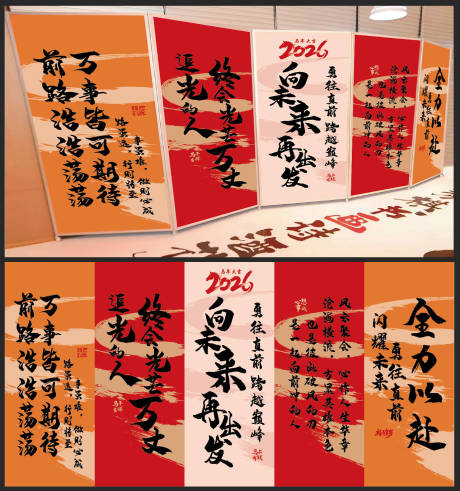 前路浩浩荡荡
万事皆可期待
路虽远，行则将至
事虽难，做则必成
追光的人
终会光芒万丈
马年大吉
2026
向未来
再出发
勇往直前 跨越巅峰
风云聚会 作人生华章
沧海横流 方显英雄本色
也是彼此破风的刀
是一起向前冲的人
全力以赴
勇往直前
闪耀未来
前路浩浩荡荡
万事皆可期待
路虽远，行则将至
事虽难，做则必成
追光的人
终会光芒万丈
马年大吉
2026
向未来
再出发
勇往直前 跨越巅峰
风云聚会 作人生华章
沧海横流 方显英雄本色
也是彼此破风的刀
是一起向前冲的人
全力以赴
勇往直前
闪耀未来